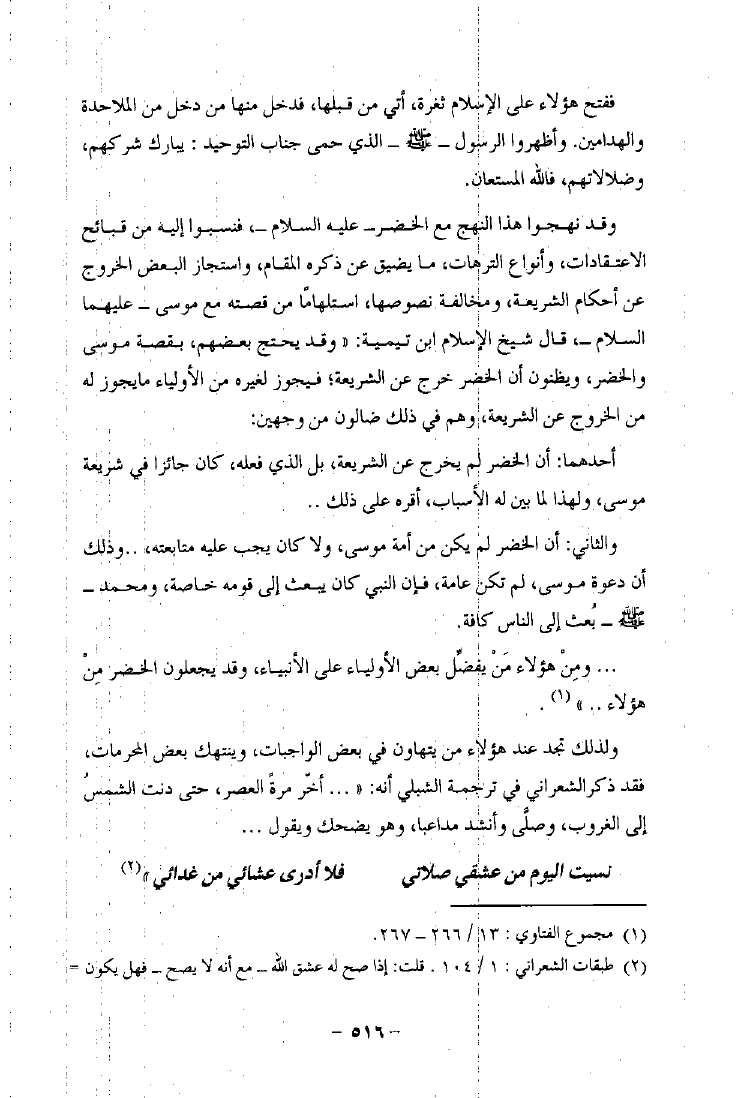 ففتح هؤلاء على الإسلام ثغرة، أتي من قبلها، فدخل منها من دخل من الملاحدة
والهدامين. وأظهروا الرسول ـ ﷺ ـ الذي حمى جناب التوحيد : يبارك شركهم،
وضلالاتهم، فالله المستعان.
وقد نهجوا هذا النهج مع الخضر ـ عليه السلام ـ، فنسبوا إليه من قبائح
الاعتقادات، وأنواع الترهات، ما يضيق عن ذكره المقام، واستجاز البعض الخروج
عن أحكام الشريعة، ومخالفة نصوصها، استلهامًا من قصته مع موسى ـ عليهما
السلام ـ، قال شيخ الإسلام ابن تيمية: « وقد يحتج بعضهم، بقصة موسى
والخضر، ويظنون أن الخضر خرج عن الشريعة؛ فيجوز لغيره من الأولياء مايجوز له
من الخروج عن الشريعة، وهم في ذلك ضالون من وجهين:
أحدهما: أن الخضر لم يخرج عن الشريعة، بل الذي فعله، كان جائزا في شريعة
موسى، ولهذا لما بين له الأسباب، أقره على ذلك ..
والثاني: أن الخضر لم يكن من أمة موسى، ولا كان يجب عليه متابعته، ..وذلك
أن دعوة موسى، لم تكن عامة، فإن النبي كان يبعث إلى قومه خاصة، ومحمد ـ
ﷺ ـ بُعث إلى الناس كافة.
... ومِنْ هؤلاء مَنْ يفضِّل بعض الأولياء على الأنبياء، وقد يجعلون الخضر مِنْ
هؤلاء .. » (١) .
ولذلك تجد عند هؤلاء من يتهاون في بعض الواجبات، وينتهك بعض المحرمات،
فقد ذكر الشعراني في ترجمة الشبلي أنه: « ... أخّر مرةً العصر، حتى دنت الشمسُ
إلى الغروب، وصلَّى وأنشد مداعبا، وهو يضحك ويقول ...
نسيت اليوم من عشقي صلاتي فلا أدرى عشائي من غدائي »(٢)
(١) مجموع الفتاوي : ١٣ / ٢٦٦ ـ ٢٦٧.
(٢) طبقات الشعراني : ١ / ١٠٤ . قلت: إذا صح له عشق الله ـ مع أنه لا يصح ـ فهل يكون =
ـ ٥١٦ ـ